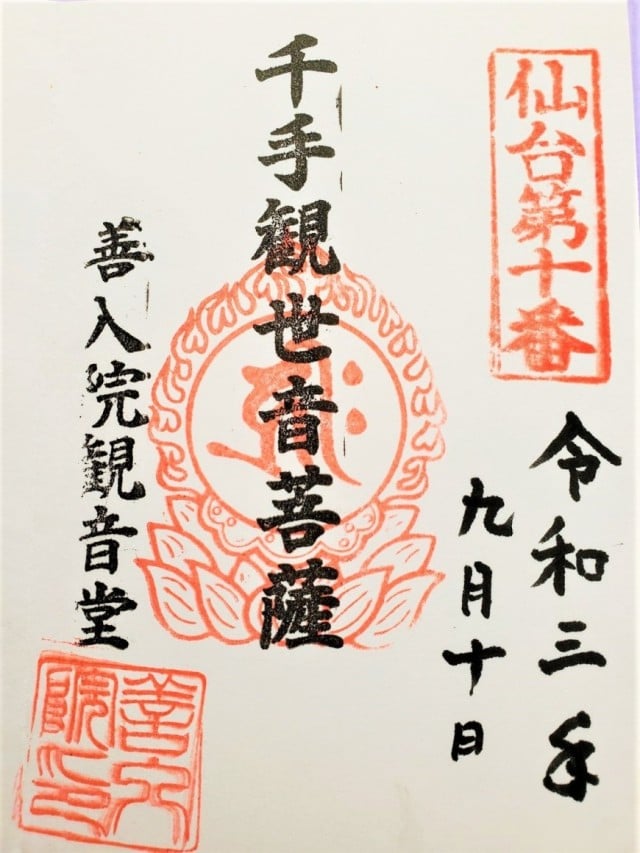 仙台第十番
令和三年
九月十日
千手観世音菩薩
善入院観音堂
善入院印